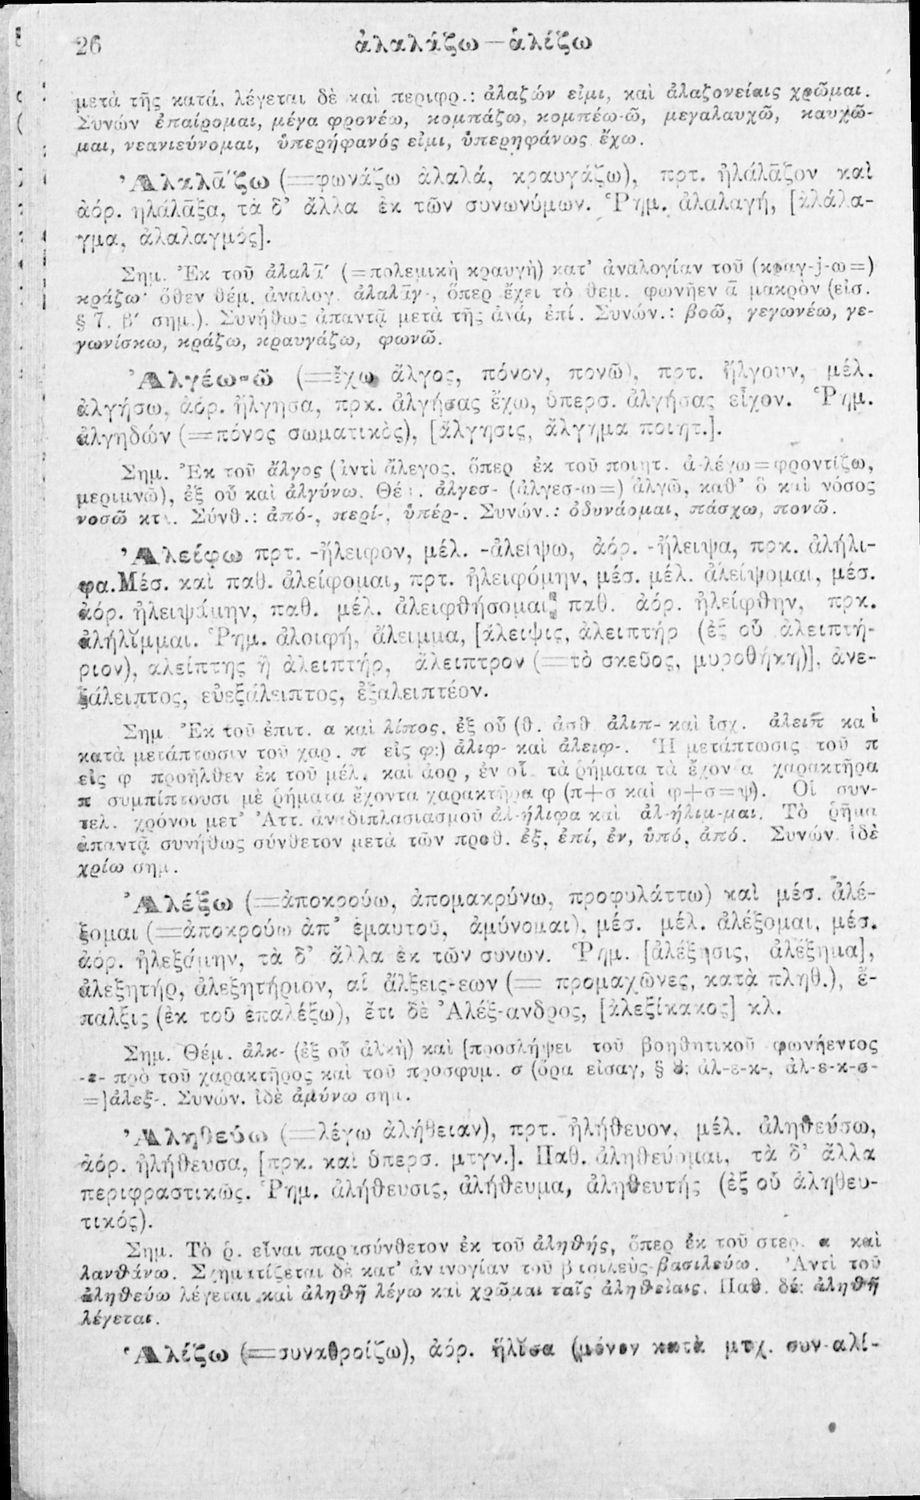 26
ἀλαλάζω—ἁλίζω
μετὰ τῆς κατά. λέγεται δὲ καὶ περιφρ.: ἀλαζών εἰμι, καὶ ἀλαζονείαις χρῶμαι.
Συνών ἐπαίρομαι, μέγα φρονέω, κομπάζω, κομπέω-ῶ, μεγαλαυχῶ, καυχῶ-
μαι, νεανιεύνομαι, ὑπερήφανός εἰμι, ὑπερηφάνως ἔχω.
Ἀλαλᾱ́ζω (=φωνάζω ἀλαλά, κραυγάζω), πρτ. ἠλάλᾱζον καὶ
ἀόρ. ηλάλᾱξα, τὰ δ' ἄλλα ἐκ τῶν συνωνύμων. Ῥημ. ἀλαλαγή, [ἀλάλα-
γμα, ἀλαλαγμός].
Σημ. Ἐκ τοῦ ἀλαλᾱ́ (=πολεμικὴ κραυγὴ) κατ' ἀναλογίαν τοῦ (κραγ-j-ω=)
κράζω· ὅθεν θέμ. ἀναλογ. ἀλαλᾱγ-, ὅπερ ἔχει τὸ θεμ. φωνῆεν ᾱ μακρὸν (εἰσ.
§ 7. β′ σημ.). Συνήθως ἀπαντᾷ μετὰ τῆς ἀνά, ἐπί. Συνών.: βοῶ, γεγωνέω, γε-
γωνίσκω, κράζω, κραυγάζω, φωνῶ.
Ἀλγέω-ῶ (=ἔχω ἄλγος, πόνον, πονῶ), πρτ. ἤλγουν, μέλ.
ἀλγήσω, ἀόρ. ἤλγησα, πρκ. ἀλγήσας ἔχω, ὑπερσ. ἀλγήσας εἶχον. Ῥημ.
ἀλγηδών (=πόνος σωματικὸς), [ἄλγησις, ἄλγημα ποιητ.].
Σημ. Ἐκ τοῦ ἄλγος (ἀντὶ ἄλεγος. ὅπερ ἐκ τοῦ ποιητ. ἀ-λέγω=φροντίζω,
μεριμνῶ), ἐξ οὗ καὶ ἀλγύνω. Θέμ. ἀλγεσ- (ἀλγεσ-ω=) ἀλγῶ, καθ' ὃ καὶ νόσος
νοσῶ κτλ. Σύνθ.: ἀπό-, περί-, ὑπέρ-. Συνών.: ὀδυνάομαι, πάσχω, πονῶ.
Ἀλείφω πρτ. -ἤλειφον, μέλ. -ἀλείψω, ἀόρ. -ἤλειψα, πρκ. ἀλήλι-
φα.Μέσ. καὶ παθ. ἀλείφομαι, πρτ. ἠλειφόμην, μέσ. μέλ. ἀλείψομαι, μέσ.
ἀόρ. ἠλειψάμην, παθ. μέλ. ἀλειφθήσομαι, παθ. ἀόρ. ἠλείφθην, πρκ.
ἀλήλῐμμαι. Ῥημ. ἀλοιφή, ἄλειμμα, [ἄλειψις, ἀλειπτήρ (ἐξ οὗ ἀλειπτή-
ριον), αλείπτης ἢ ἀλειπτήρ, ἄλειπτρον (=τὸ σκεῦος, μυροθήκη)], ἀνε-
ξάλειπτος, εὐεξάλειπτος, ἐξαλειπτέον.
Σημ Ἐκ τοῦ ἐπιτ. α καὶ λίπος, ἐξ οὗ (θ. ἀσθ ἀλιπ- καὶ ἰσχ. ἀλειπ καὶ
κατὰ μετάπτωσιν τοῦ χαρ. π εἰς φ:) ἀλιφ- καὶ ἀλειφ-. Ἡ μετάπτωσις τοῦ π
εἰς φ προῆλθεν ἐκ τοῦ μέλ. καὶ ἀορ, ἐν οἷς τὰ ῥήματα τὰ ἔχοντα χαρακτῆρα
π συμπίπτουσι μὲ ῥήματα ἔχοντα χαρακτῆρα φ (π+σ καὶ φ+σ=ψ). Οἱ συν-
τελ. χρόνοι μετ' Ἀττ. ἀναδιπλασιασμοῦ ἀλ-ήλιφα καὶ ἀλ-ήλιμ-μαι. Τὸ ῥῆμα
ἀπαντᾷ συνήθως σύνθετον μετὰ τῶν προθ. ἐξ, ἐπί, ἐν, ὑπό, ἀπό. Συνών. ἰδὲ
χρίω σημ.
Ἀλέξω (=ἀποκρούω, ἀπομακρύνω, προφυλάττω) καὶ μέσ. ἀλέ-
ξομαι (=ἀποκρούω ἀπ' ἐμαυτοῦ, ἀμύνομαι), μέσ. μέλ. ἀλέξομαι, μέσ.
ἀόρ. ἠλεξάμην, τὰ δ' ἄλλα ἐκ τῶν συνων. Ῥημ. [ἀλέξησις, ἀλέξημα],
ἀλεξητήρ, ἀλεξητήριον, αἱ ἄλξεις-εων (= προμαχῶνες, κατὰ πληθ.), ἔ-
παλξις (ἐκ τοῦ ἐπαλέξω), ἔτι δὲ Ἀλέξ-ανδρος, [ἀλεξίκακος] κλ.
Σημ. Θέμ. ἀλκ- (ἐξ οὗ ἀλκὴ) καὶ [προσλήψει τοῦ βοηθητικοῦ φωνήεντος
-ε- πρὸ τοῦ χαρακτῆρος καὶ τοῦ προσφυμ. σ (ὅρα εἰσαγ, § 8: ἀλ-ε-κ-, ἀλ-ε-κ-σ-
=]ἀλεξ-. Συνών. ἰδὲ ἀμύνω σημ.
Ἀληθεύω (=λέγω ἀλήθειαν), πρτ. ἠλήθευον, μέλ. ἀληθεύσω,
ἀόρ. ἠλήθευσα, [πρκ. καὶ ὑπερσ. μτγν.]. Παθ. ἀληθεύομαι, τὰ δ' ἄλλα
περιφραστικῶς. Ῥημ. ἀλήθευσις, ἀλήθευμα, ἀληθευτής (ἐξ οὗ ἀληθευ-
τικός).
Σημ. Τὸ ῥ. εἶναι παρασύνθετον ἐκ τοῦ ἀληθής, ὅπερ ἐκ τοῦ στερ. α καὶ
λανθάνω. Σχηματίζεται δὲ κατ' ἀναλογίαν τοῦ βασιλεὺς-βασιλεύω. Ἀντὶ τοῦ
ἀληθεύω λέγεται καὶ ἀληθῆ λέγω καὶ χρῶμαι ταῖς ἀληθείαις. Παθ. δέ: ἀληθῆ
λέγεται.
Ἁλίζω (=συναθροίζω), ἀόρ. ἥλῐσα (μόνον κατὰ μτχ. συν-αλί-